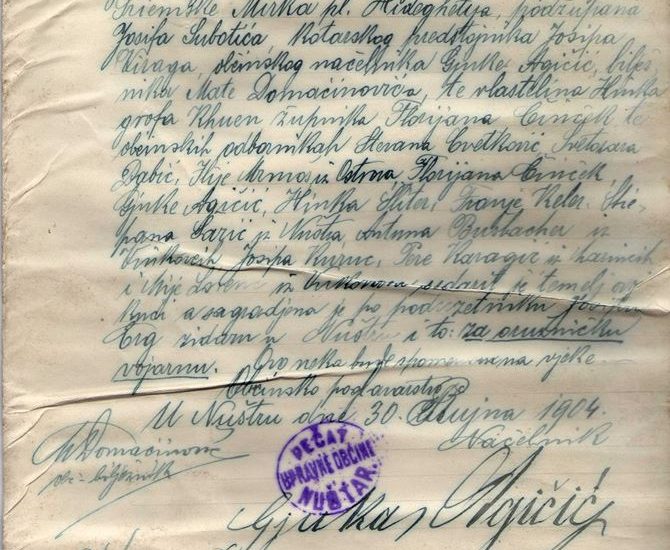 Sriemske Mirka pl. Hideghetija, podžupana
Josifa Subotića kotarskog predstojnika Josipa
Viraga, občinskog načelnika Gjuke Agičić, bilež-
nika Mate Domaćinovića, te vlastelina Hinka
grofa Khuen župnika Florijana Činček te
občinskih odbornikah Stevana Cvetković, Svetozara
Babić, Ilije Mrmoš iz Ostrova Florijana Činček
Gjuke Agičić, Hinka Hiter, Franje Keler, Stje-
pana Sazić iz Nuštra, Antuna Burbacher iz
Vinkovcih Josipa Kuruc, Pere Karagić iz Marincih
i Mije iz Vinkovaca je temelj ovoj
kući a sagradjena je po poduzetniku
zidaru u Nuštru i to: za oružničku
vojarnu. Ovo neka bude spomen na vjeke.
Občinsko poglavarstvo
U Nuštru dne 30. Rujna 1904.
Načelnik
M Domaćinović
ob. bilježnik
PEČAT
UPRAVNE OBČINE
NUŠTAR.
Gjuka Agičić